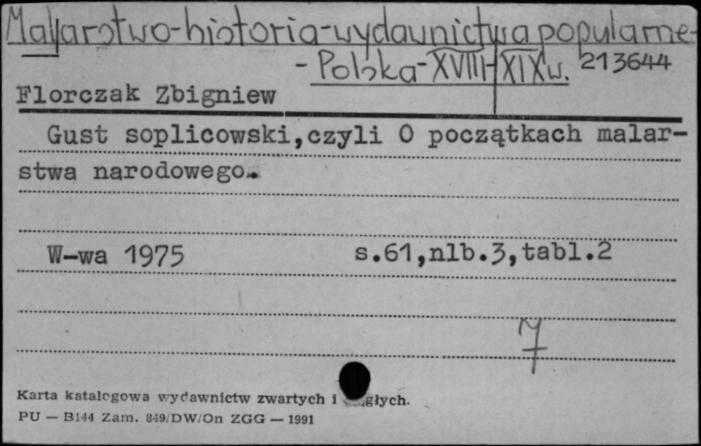 Malarstwo-historia-wydawnictwa popularne-
-Polska-XVIII-XIXw. 213644
Florczak Zbigniew
Gust soplicowski,czyli O początkach malar-
stwa narodowego.
W-wa 1975 s.61,nlb.3,tabl.2
Karta katalogowa wydawnictw zwartych i głych.
PU — B144 Zam. 849/DW/On ZGG — 1991